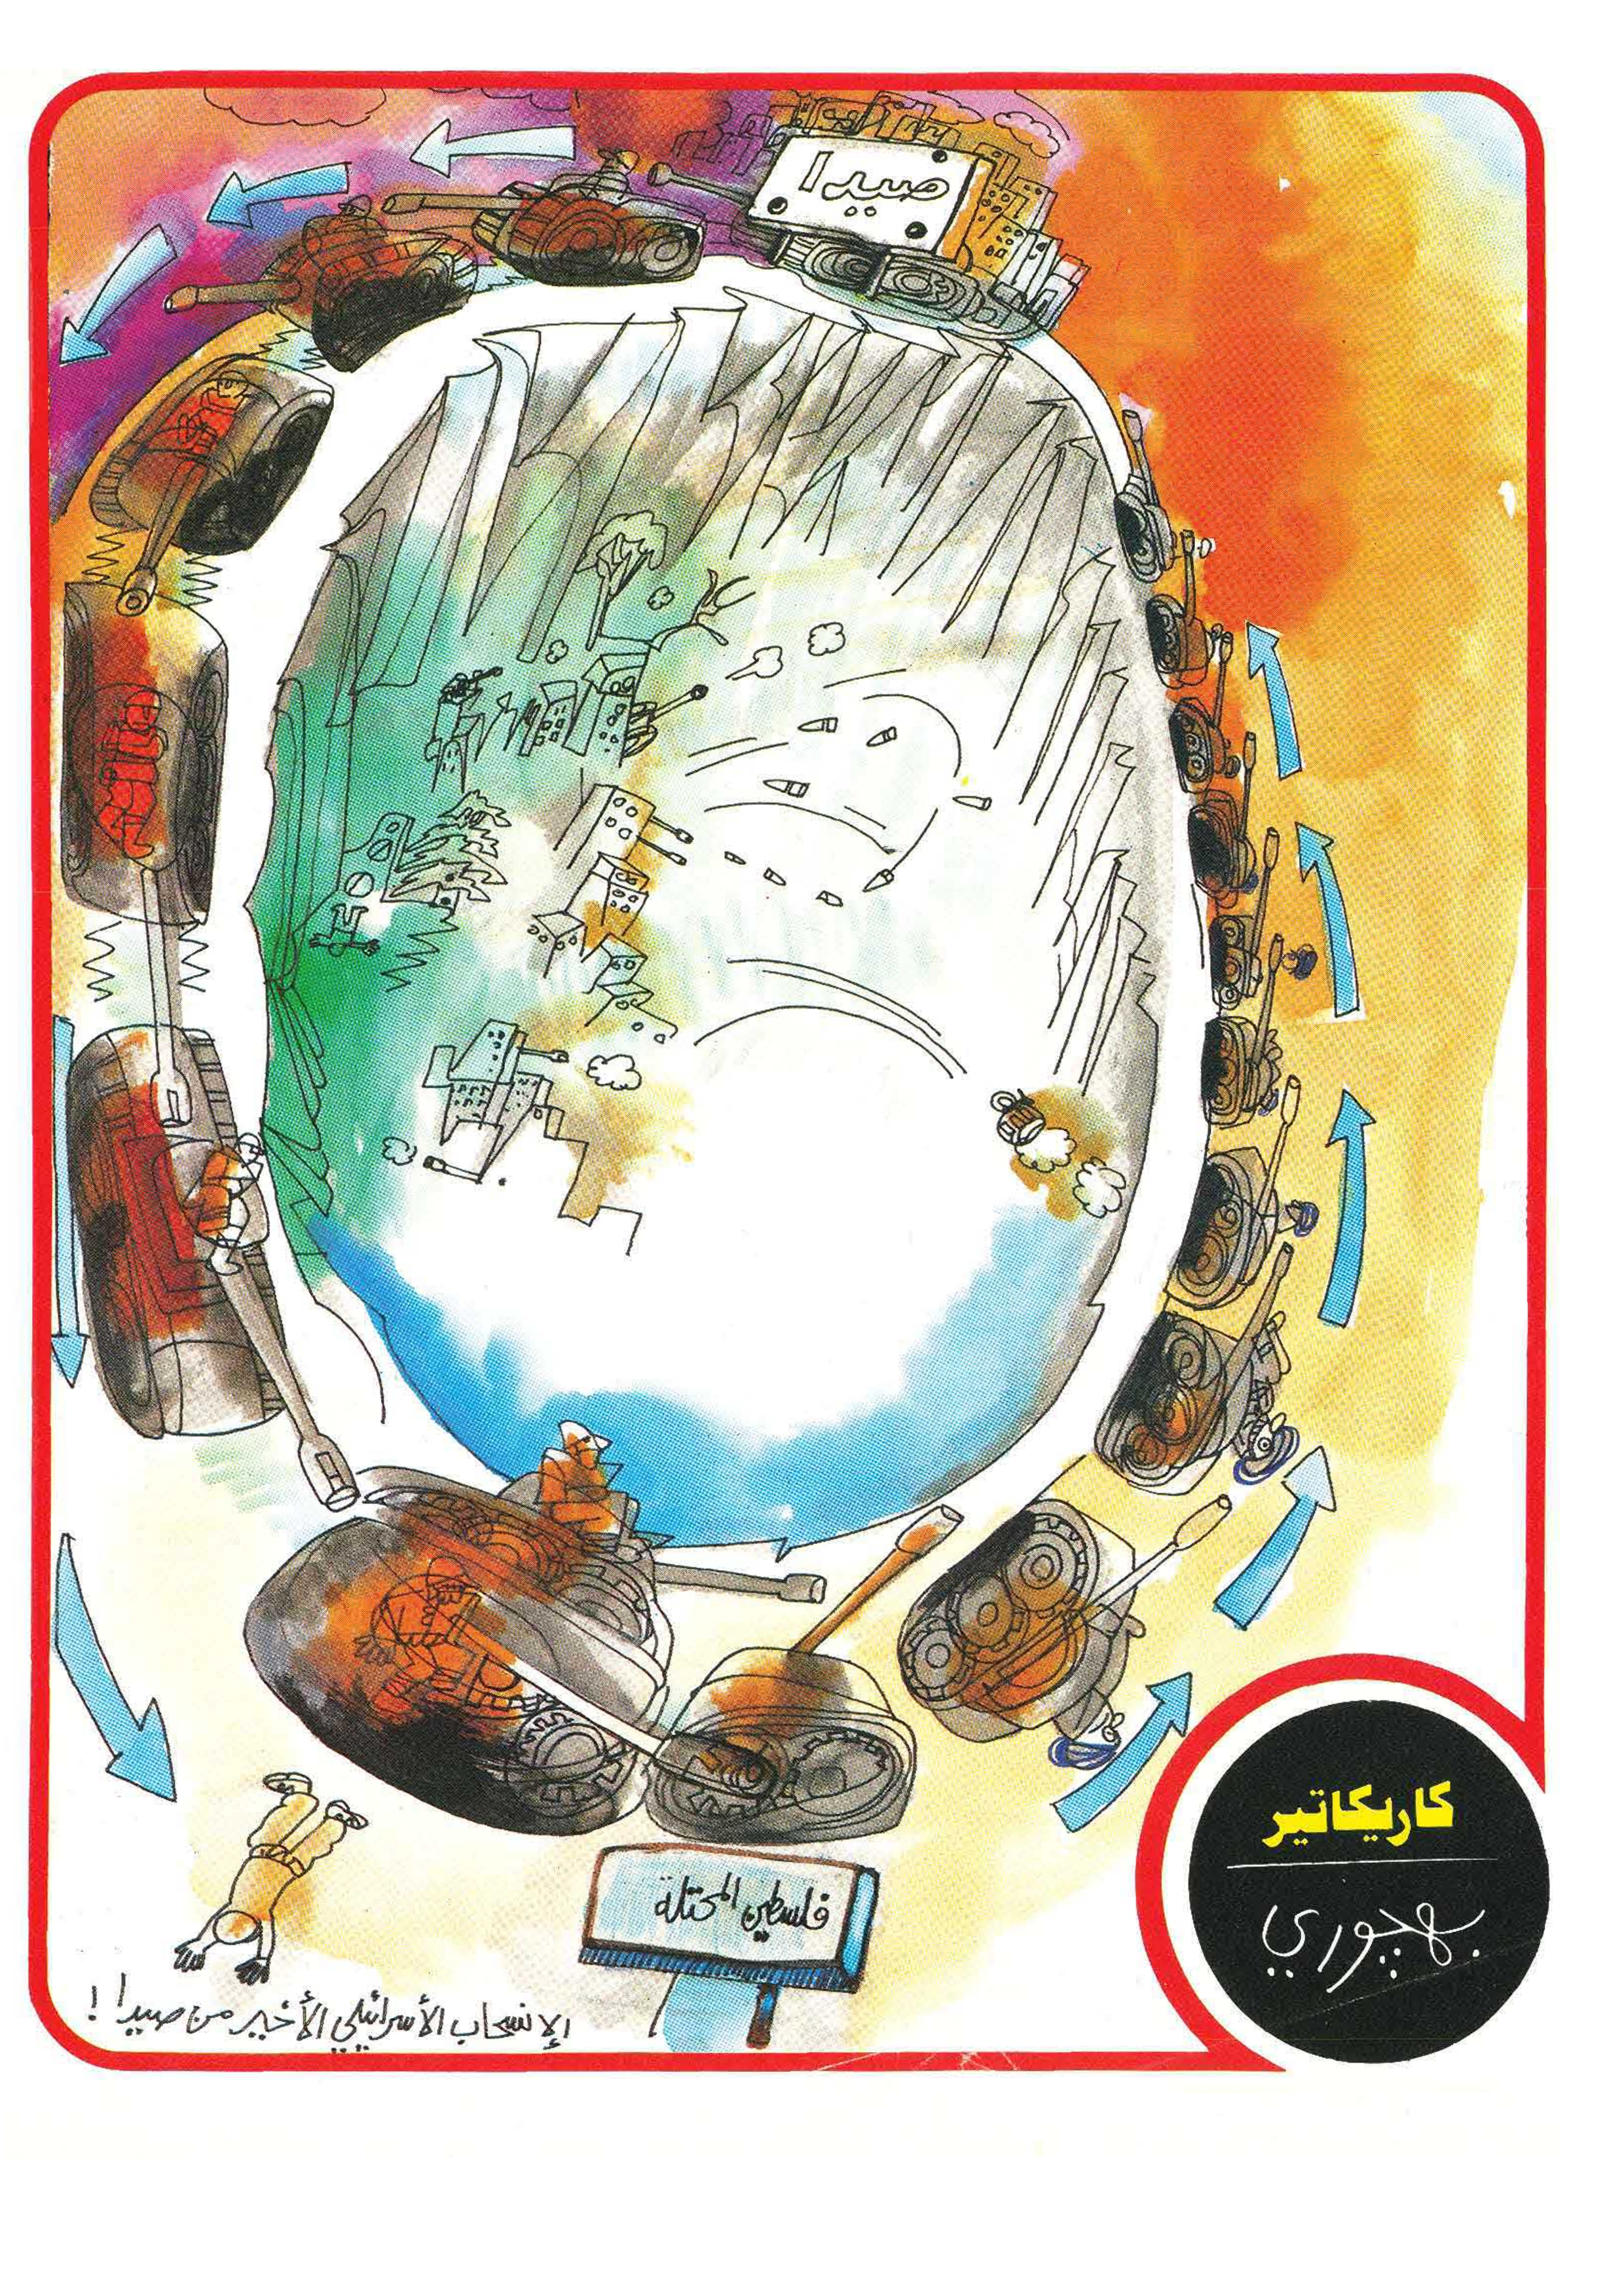 صيدا
فلسطين المحتلة
الإنسحاب الأسرائيلي الأخير من صيدا !
كاريكاتير
بهجوري